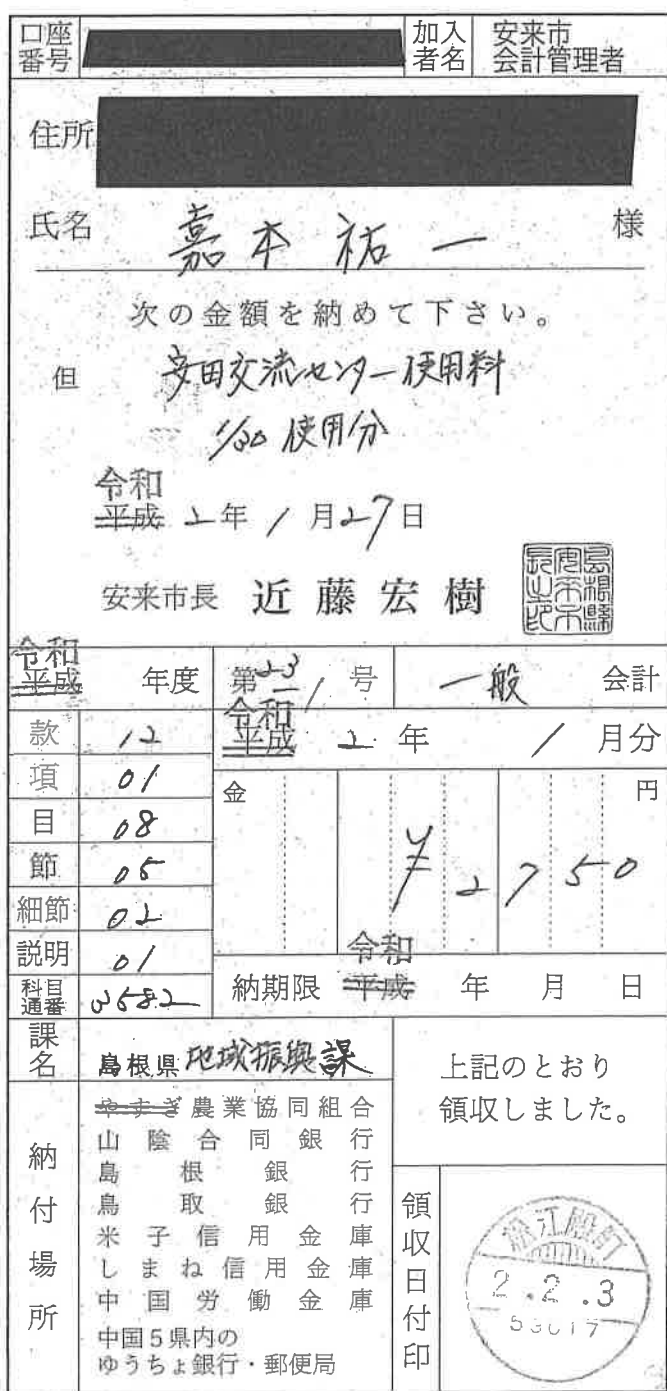 口座番号
加入者名 安来市会計管理者
住所
氏名 嘉本祐一 様
次の金額を納めて下さい。
但 安田交流センター使用料
1/30 使用分
令和
平成 2年 1月27日
安来市長 近藤宏樹
島根縣安来市長之印
令和
平成 年度 第 号 一般 会計
令和
平成 2年 1月分
款 12
項 01
目 08
節 05
細節 02
説明 01
科目通番 3682
金 円
¥2750
令和
納期限 平成 年 月 日
課名 島根県 地域振興課
上記のとおり
領収しました。
納付場所
やすぎ農業協同組合
山陰合同銀行
島根銀行
鳥取銀行
米子信用金庫
しまね信用金庫
中国労働金庫
中国5県内の
ゆうちょ銀行・郵便局
領収日付印
松江殿町
2.2.3
53017